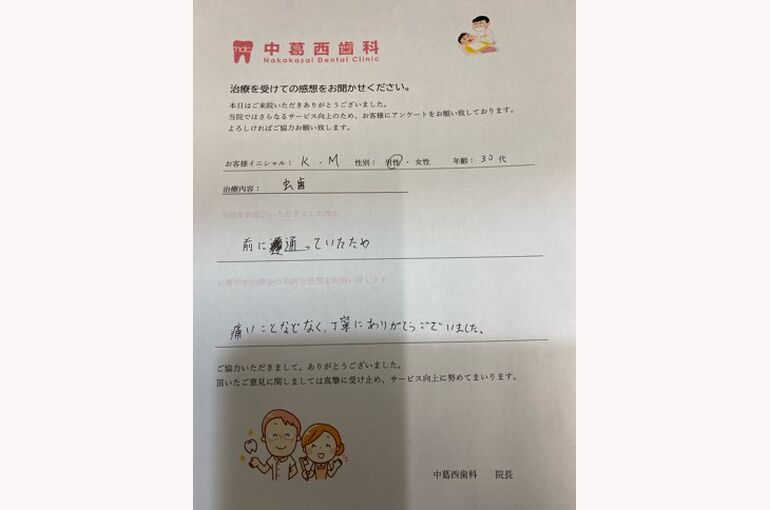 mdc
中葛西歯科
Nakakasai Dental Clinic
治療を受けての感想をお聞かせください。
本日はご来院いただきありがとうございました。
当院ではさらなるサービス向上のため、お客様にアンケートをお願い致しております。
よろしければご協力お願い致します。
お客様イニシャル： K . M 性別： 男性 ・ 女性 年齢： 30 代
治療内容： 虫歯
当院をお選びいただきました理由
前に通っていたため
治療中や治療後の率直な感想をお願い致します
痛いことなどなく、丁寧にありがとうございました、
ご協力いただきまして、ありがとうございました。
頂いたご意見に関しましては真摯に受け止め、サービス向上に努めてまいります。
中葛西歯科 院長